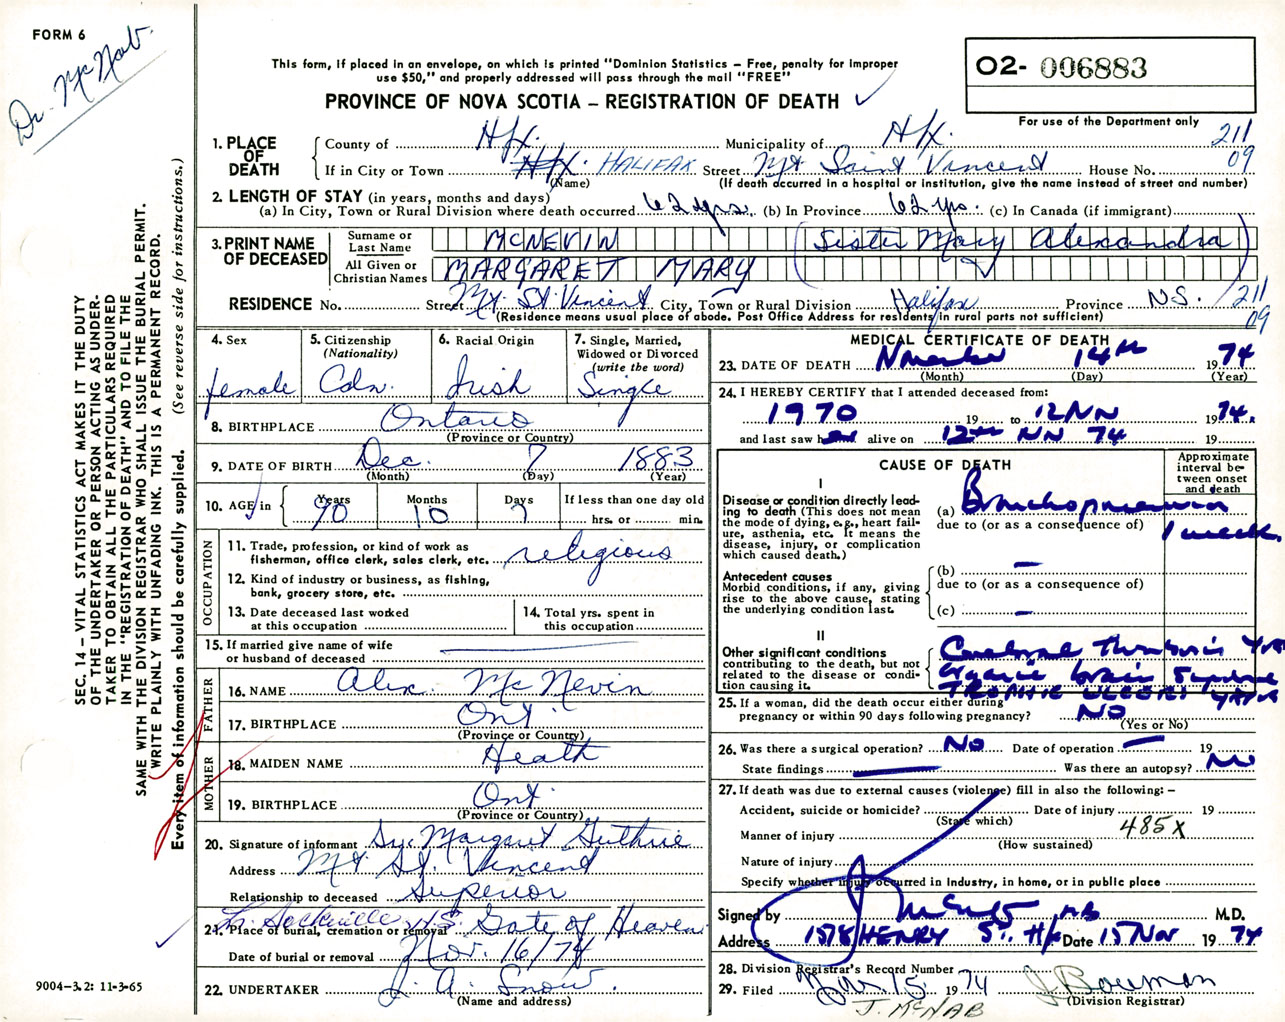 FORM 6
Dr. McNab.
This form, if placed in an envelope, on which is printed "Dominion Statistics – Free, penalty for improper
use $50," and properly addressed will pass through the mail "FREE"
PROVINCE OF NOVA SCOTIA – REGISTRATION OF DEATH ✓
O2- 006883
For use of the Department only
211
09
1. PLACE OF DEATH
County of Hfx. Municipality of Hfx.
If in City or Town Hfx HALIFAX Street Mt Saint Vincent House No.
(Name) (If death occurred in a hospital or institution, give the name instead of street and number)
2. LENGTH OF STAY (in years, months and days)
(a) In City, Town or Rural Division where death occurred 62 yrs. (b) In Province 62 yrs. (c) In Canada (if immigrant)
3. PRINT NAME OF DECEASED
Surname or Last Name MCNEVIN (Sister Mary Alexandra)
All Given or Christian Names MARGARET MARY
RESIDENCE No. Street Mt. St. Vincent City, Town or Rural Division Halifax Province N.S. 211
09
(Residence means usual place of abode. Post Office Address for residents in rural parts not sufficient)
4. Sex
female
5. Citizenship
(Nationality)
Cdn.
6. Racial Origin
Irish
7. Single, Married,
Widowed or Divorced
(write the word)
Single
8. BIRTHPLACE Ontario
(Province or Country)
9. DATE OF BIRTH Dec. 7 1883
(Month) (Day) (Year)
10. AGE in
Years 90
Months 10
Days 7
If less than one day old
hrs. or min.
OCCUPATION
11. Trade, profession, or kind of work as
fisherman, office clerk, sales clerk, etc. religious
12. Kind of industry or business, as fishing,
bank, grocery store, etc.
13. Date deceased last worked
at this occupation
14. Total yrs. spent in
this occupation
15. If married give name of wife
or husband of deceased
FATHER
16. NAME Alex. McNevin
17. BIRTHPLACE Ont.
(Province or Country)
MOTHER
18. MAIDEN NAME Heath
19. BIRTHPLACE Ont.
(Province or Country)
20. Signature of informant Sr. Margaret Guthrie
Address Mt St. Vincent
Relationship to deceased Superior
L. Sackville N.S.
21. Place of burial, cremation or removal Gate of Heaven
Date of burial or removal Nov. 16/74
22. UNDERTAKER J. A. Snow.
(Name and address)
MEDICAL CERTIFICATE OF DEATH
23. DATE OF DEATH November 14th 1974
(Month) (Day) (Year)
24. I HEREBY CERTIFY that I attended deceased from:
1970 19 to 12 NN 1974.
and last saw her alive on 12th NN 74 19
CAUSE OF DEATH
Approximate
interval be-
tween onset
and death
I
Disease or condition directly lead-
ing to death (This does not mean
the mode of dying, e.g., heart fail-
ure, asthenia, etc. It means the
disease, injury, or complication
which caused death.)
(a) Bronchopneumonia
due to (or as a consequence of) 1 week.
Antecedent causes
Morbid conditions, if any, giving
rise to the above cause, stating
the underlying condition last.
(b) –
due to (or as a consequence of)
(c) –
II
Other significant conditions
contributing to the death, but not
related to the disease or condi-
tion causing it.
Cerebral Thrombosis YRS
Organic brain Syndrome
TROPHIC ULCERS YEARS
25. If a woman, did the death occur either during
pregnancy or within 90 days following pregnancy? NO
(Yes or No)
26. Was there a surgical operation? NO Date of operation – 19
State findings Was there an autopsy? NO
27. If death was due to external causes (violence) fill in also the following: –
Accident, suicide or homicide? Date of injury 19
(State which) 485X
Manner of injury
(How sustained)
Nature of injury
Specify whether injury occurred in industry, in home, or in public place
Signed by MB M.D.
Address 1578 HENRY St. Hfx Date 15 Nov 1974
28. Division Registrar's Record Number
29. Filed Nov 15 1974 J Bowman
(Division Registrar)
J. MCNAB
SEC. 14 – VITAL STATISTICS ACT MAKES IT THE DUTY
OF THE UNDERTAKER OR PERSON ACTING AS UNDER-
TAKER TO OBTAIN ALL THE PARTICULARS REQUIRED
IN THE "REGISTRATION OF DEATH" AND TO FILE THE
SAME WITH THE DIVISION REGISTRAR WHO SHALL ISSUE THE BURIAL PERMIT.
WRITE PLAINLY WITH UNFADING INK. THIS IS A PERMANENT RECORD.
Every item of information should be carefully supplied. (See reverse side for instructions.)
9004-3.2: 11-3-65